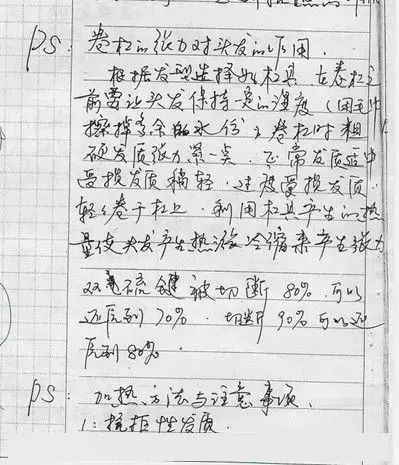 ps: 卷杠的张力对头发的作用.
根据发型选择好杠具，在卷杠之
前要让头发保持一定的湿度（用毛巾
擦掉多余的水份）卷杠时粗
硬发质张力紧一点，正常发质适中
受损发质稍轻，过度受损发质，
轻轻卷于杠上，利用杠具产生的热
量使头发产生热涨冷缩来产生张力
双硫键被切断80%可以
还原到70%．切断90%可以还
原到80%
ps: 加热方法与注意事项．
1：抗拒性发质．